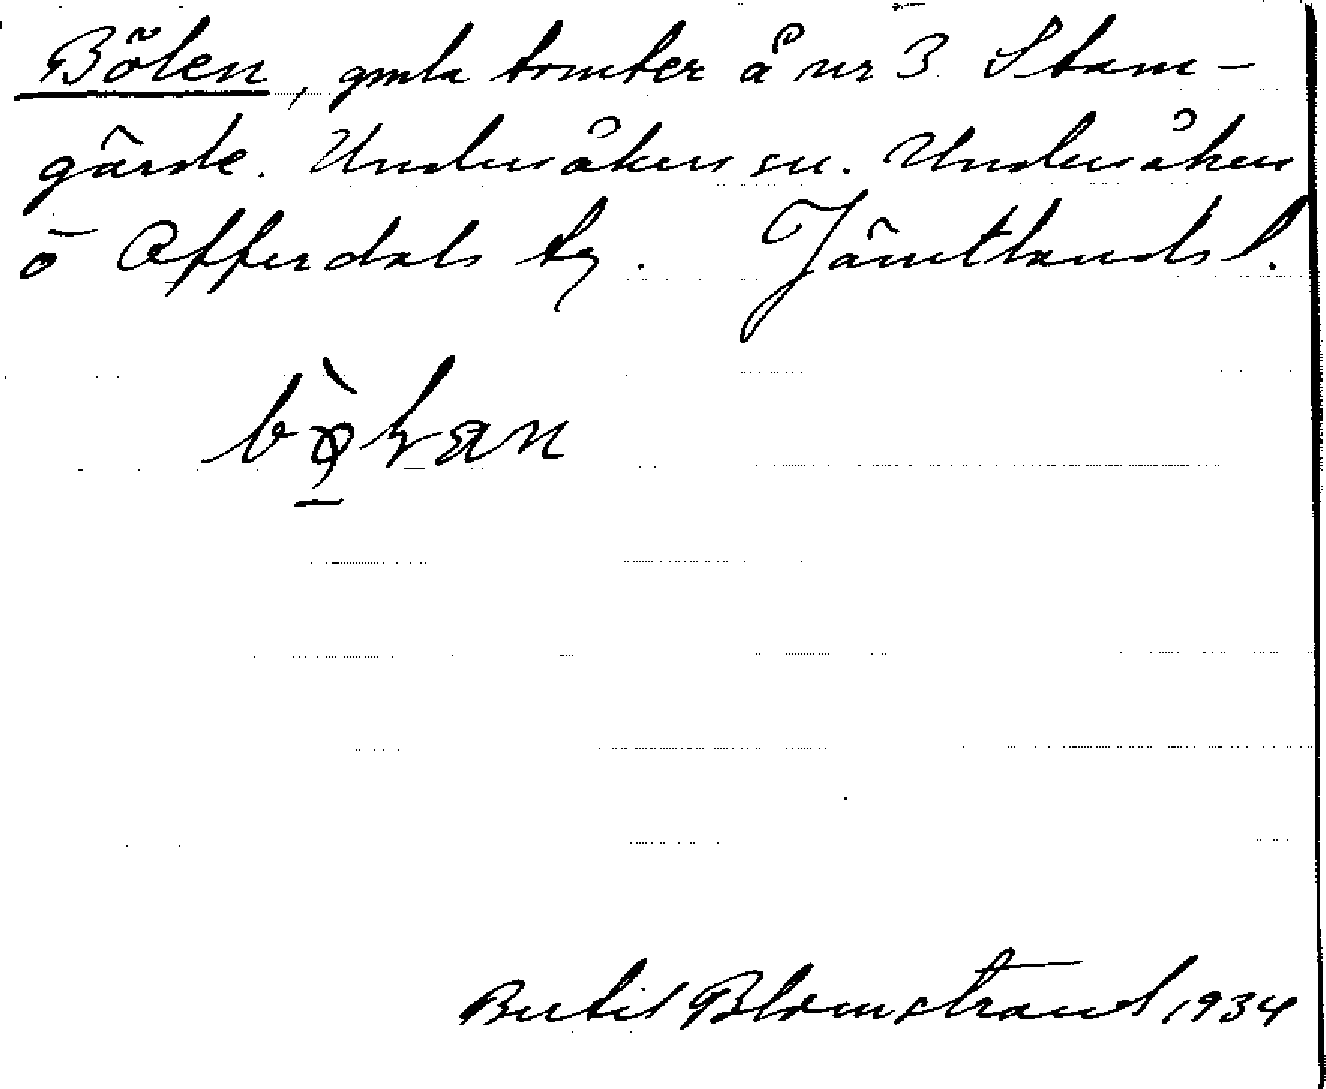 Bölen, gmla tomter å nr 3 Stam-
gärde. Undersåkers sn. Undersåkers
o Offerdals tg. Jämtlands l.
Bertil Blomstrand 1934